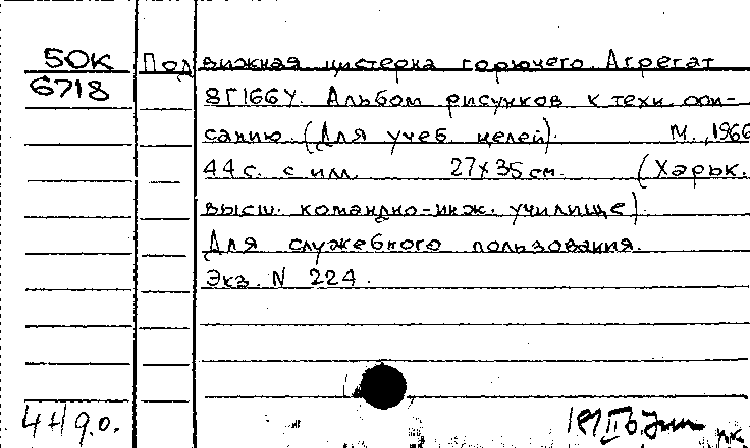 50К
6718
Подвижная цистерна горючего. Агрегат
8Г166У. Альбом рисунков к техн. опи-
санию. (Для учеб. целей). М., 1966
44 с. с илл. 27х35 см. (Харьк.
высш. командно-инж. училище).
Для служебного пользования.
Экз. N 224.